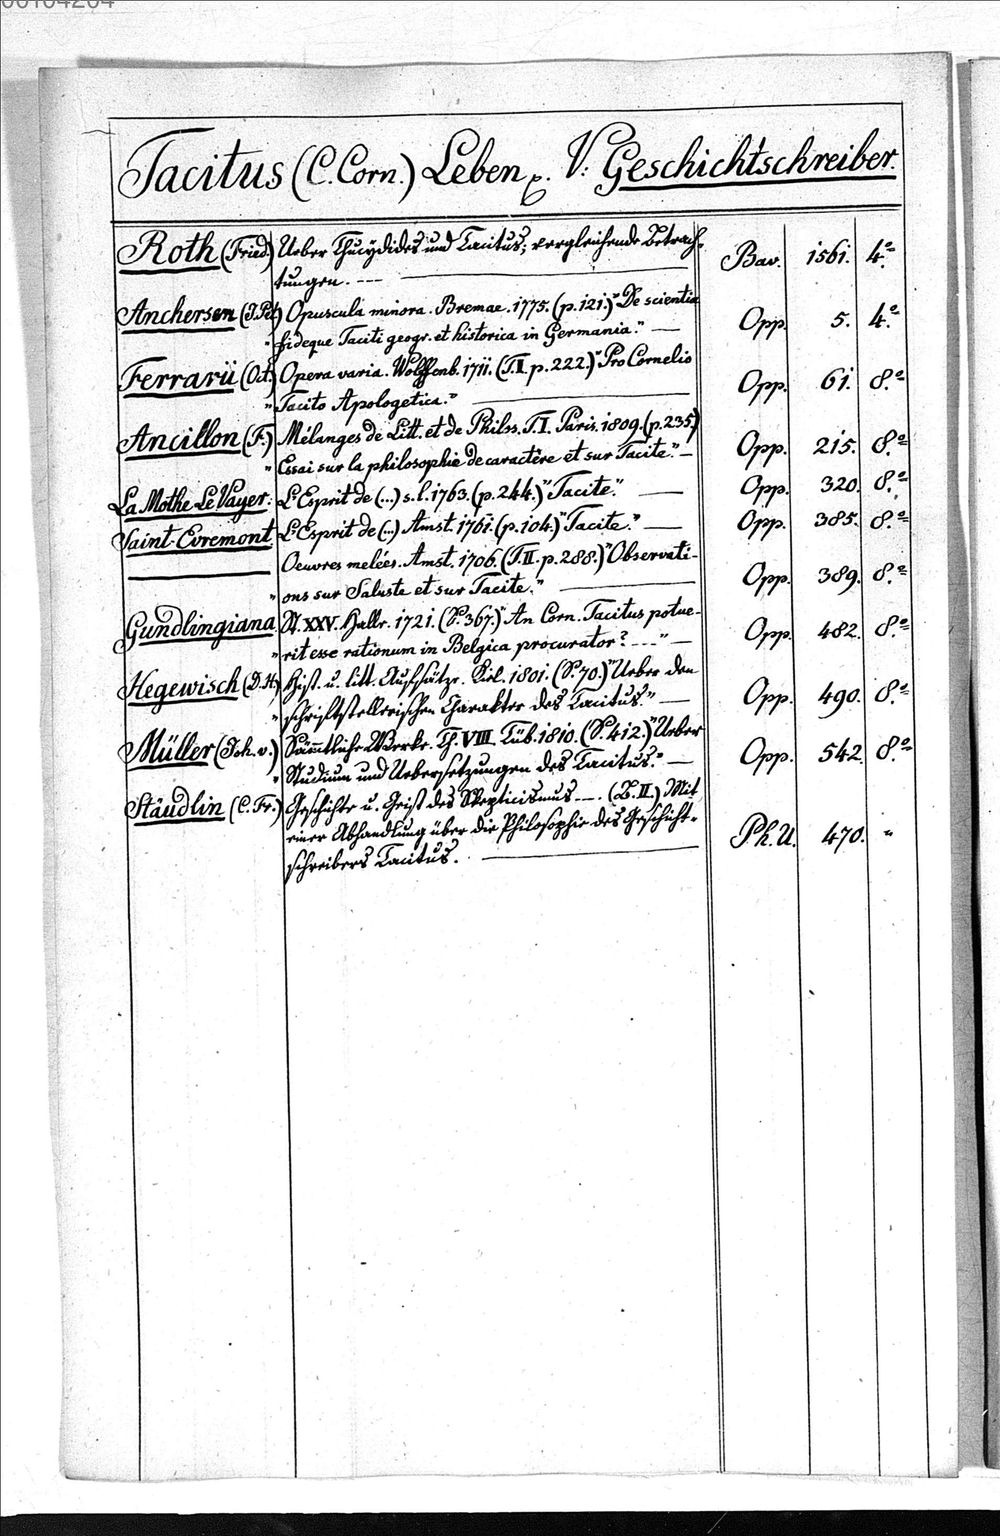 Tacitus (C. Corn.) Leben p. V: Geschichtschreiber.
Roth (Fried.) Ueber Thucydides und Tacitus; vergleichende Betrach- Bav. 1561. 4.o
tungen. ---
Anchersen (J. Pet.) Opuscula minora. Bremae. 1775. (p. 121.) "De scientia Opp. 5. 4.o
" fideque Taciti geogr. et historica in Germania." —
Ferrarii (Oct.) Opera varia. Wolffenb. 1711. (T. II. p. 222.) "Pro Cornelio Opp. 61. 8.o
" Tacito Apologetica."
Ancillon (F.) Mélanges de Litt. et de Philos. T. I. Paris. 1809. (p. 235.) Opp. 215. 8.o
" Essai sur la philosophie de caractère et sur Tacite." —
La Mothe Le Vayer: L'Esprit de (...) s. l. 1763. (p. 244.) "Tacite." — Opp. 320. 8.o
Saint-Evremont L'Esprit de (...) Amst. 1761. (p. 104.) "Tacite." — Opp. 385. 8.o
— Oeuvres melées. Amst. 1706. (T. II. p. 288.) "Observati- Opp. 389. 8.o
" ons sur Saluste et sur Tacite."
Gundlingiana St. XXV. Halle. 1721. (S. 367.) "An Corn. Tacitus potue- Opp. 482. 8.o
" rit esse rationum in Belgica procurator? ---" —
Hegewisch (D. H.) Hist. u. litt. Aufsätze. Kiel. 1801. (S. 70.) "Ueber den Opp. 490. 8.o
" schriftstellerischen Charakter des Tacitus." —
Müller (Joh. v.) Sämmtliche Werke. Th. VIII. Tüb. 1810. (S. 412.) "Ueber Opp. 542. 8.o
" Studium und Uebersetzungen des Tacitus." —
Stäudlin (C. Fr.) Geschichte u. Geist des Skepticismus --. (B. II.) Mit
einer Abhandlung über die Philosophie des Geschicht- Ph. U. 470. "
schreibers Tacitus.